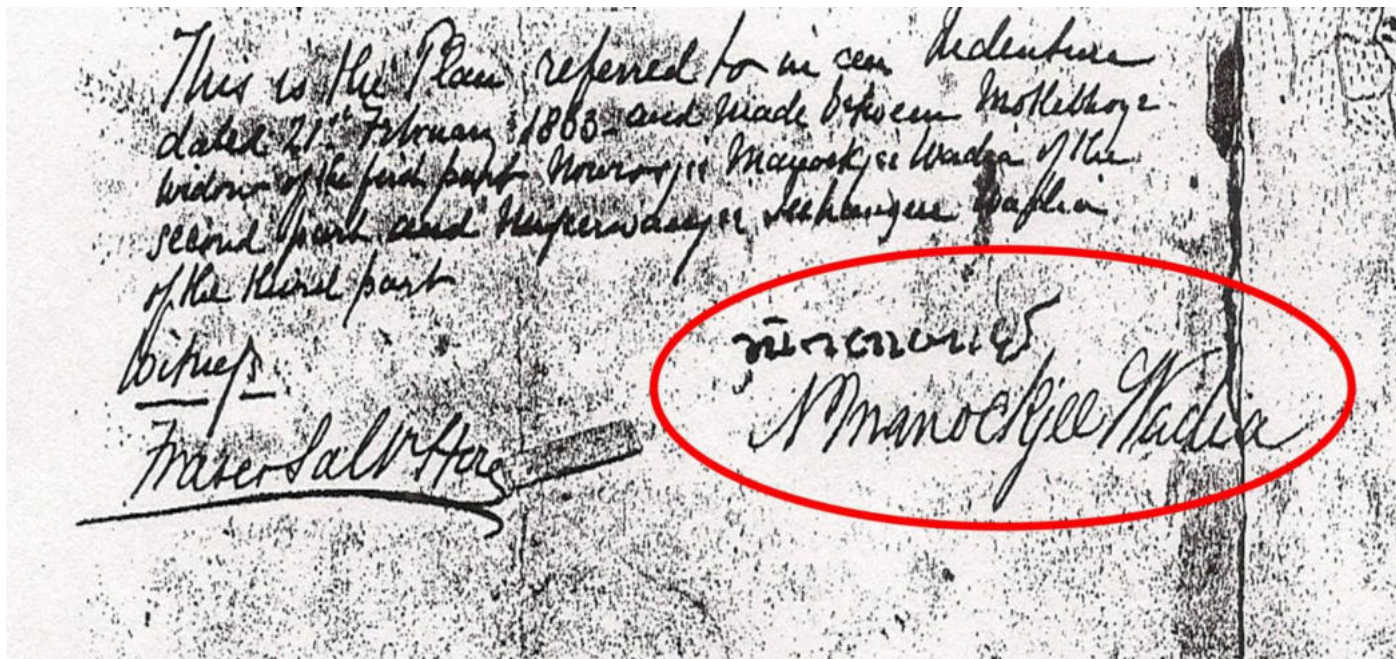 This is the Plan referred to in an Indenture
dated 21st February 1863 and made between Motlebhoye
widow of the first part Nowrojee Manockjee Wadia of the
second part and Nusserwanjee Jehangeer Wadia
of the third part
Witness
Fraser
N Manockjee Wadia